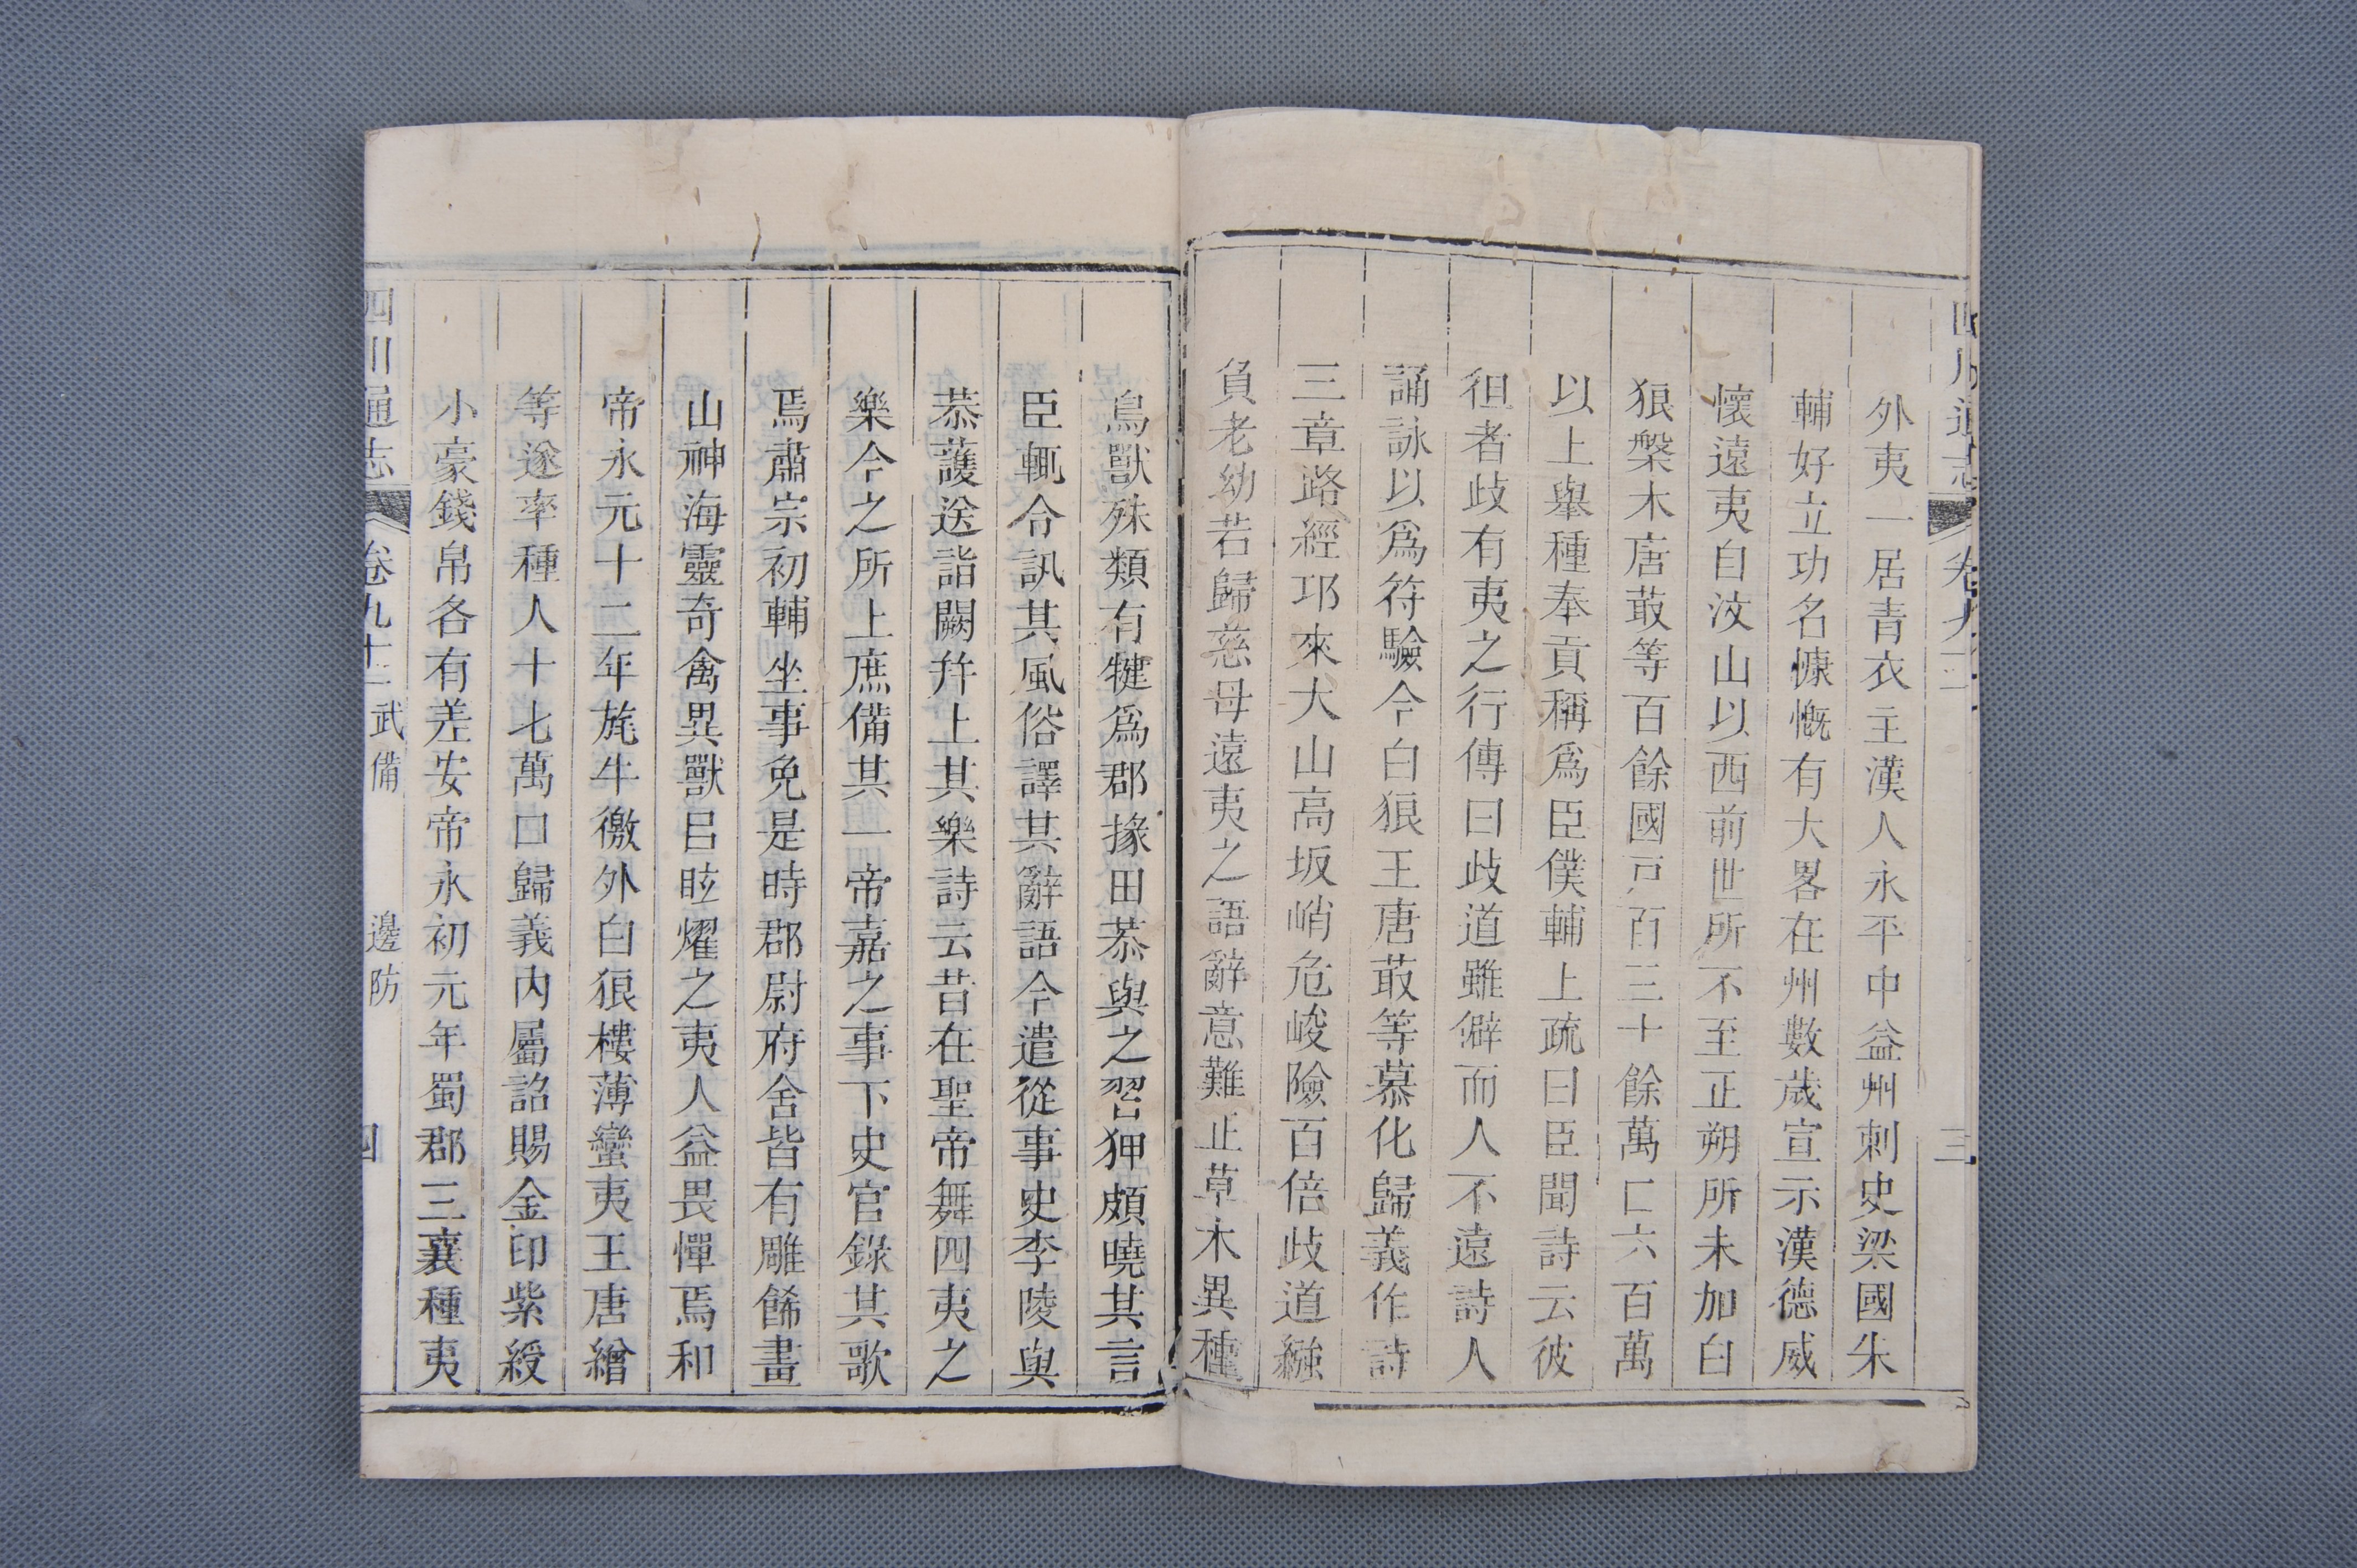 外夷一居青衣主漢人永平中益州刺史梁國朱
輔好立功名慷慨有大畧在州數歲宣示漢德威
懷遠夷自汶山以西前世所不至正朔所未加白
狼槃木唐菆等百餘國戸百三十餘萬口六百萬
以上舉種奉貢稱爲臣僕輔上疏曰臣聞詩云彼
徂者歧有夷之行傳曰歧道雖僻而人不遠詩人
誦詠以爲符驗今白狼王唐菆等慕化歸義作詩
三章路經邛來大山高坂峭危峻險百倍歧道繈
負老幼若歸慈母遠夷之語辭意難正草木異種
四川通志
卷九十二
三
鳥獸殊類有犍爲郡掾田恭與之習狎頗曉其言
臣輒令訊其風俗譯其辭語今遣從事史李陵與
恭護送詣闕幷上其樂詩云昔在聖帝舞四夷之
樂今之所上庶備其一帝嘉之事下史官錄其歌
焉肅宗初輔坐事免是時郡尉府舍皆有雕餙畫
山神海靈奇禽異獸㠯眩燿之夷人益畏憚焉和
帝永元十二年旄牛徼外白狼樓薄蠻夷王唐繒
等遂率種人十七萬口歸義內屬詔賜金印紫綬
小豪錢帛各有差安帝永初元年蜀郡三襄種夷
四川通志
卷九十二
武備
邊防
四